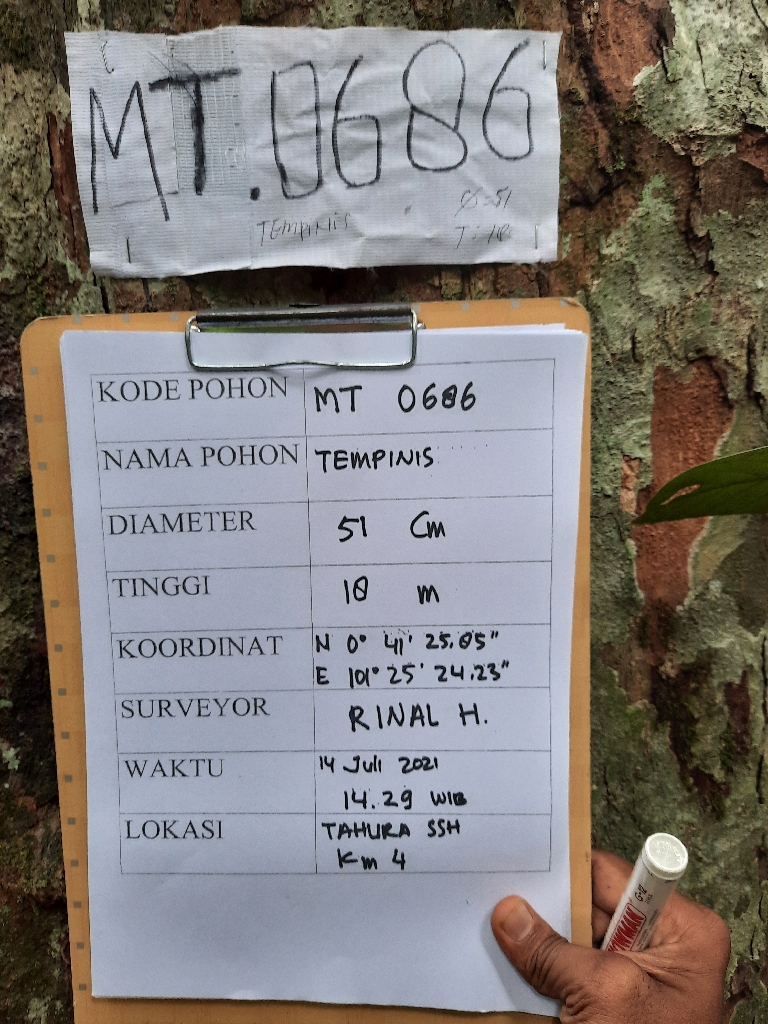 MT.0686
TEMPINIS
Ø:51
T:18
KODE POHON MT 0686
NAMA POHON TEMPINIS
DIAMETER 51 Cm
TINGGI 18 m
KOORDINAT N 0° 41' 25.05"
E 101° 25' 24.23"
SURVEYOR RINAL H.
WAKTU 14 Juli 2021
14.29 WIB
LOKASI TAHURA SSH
Km 4
SNOWMAN
G-12